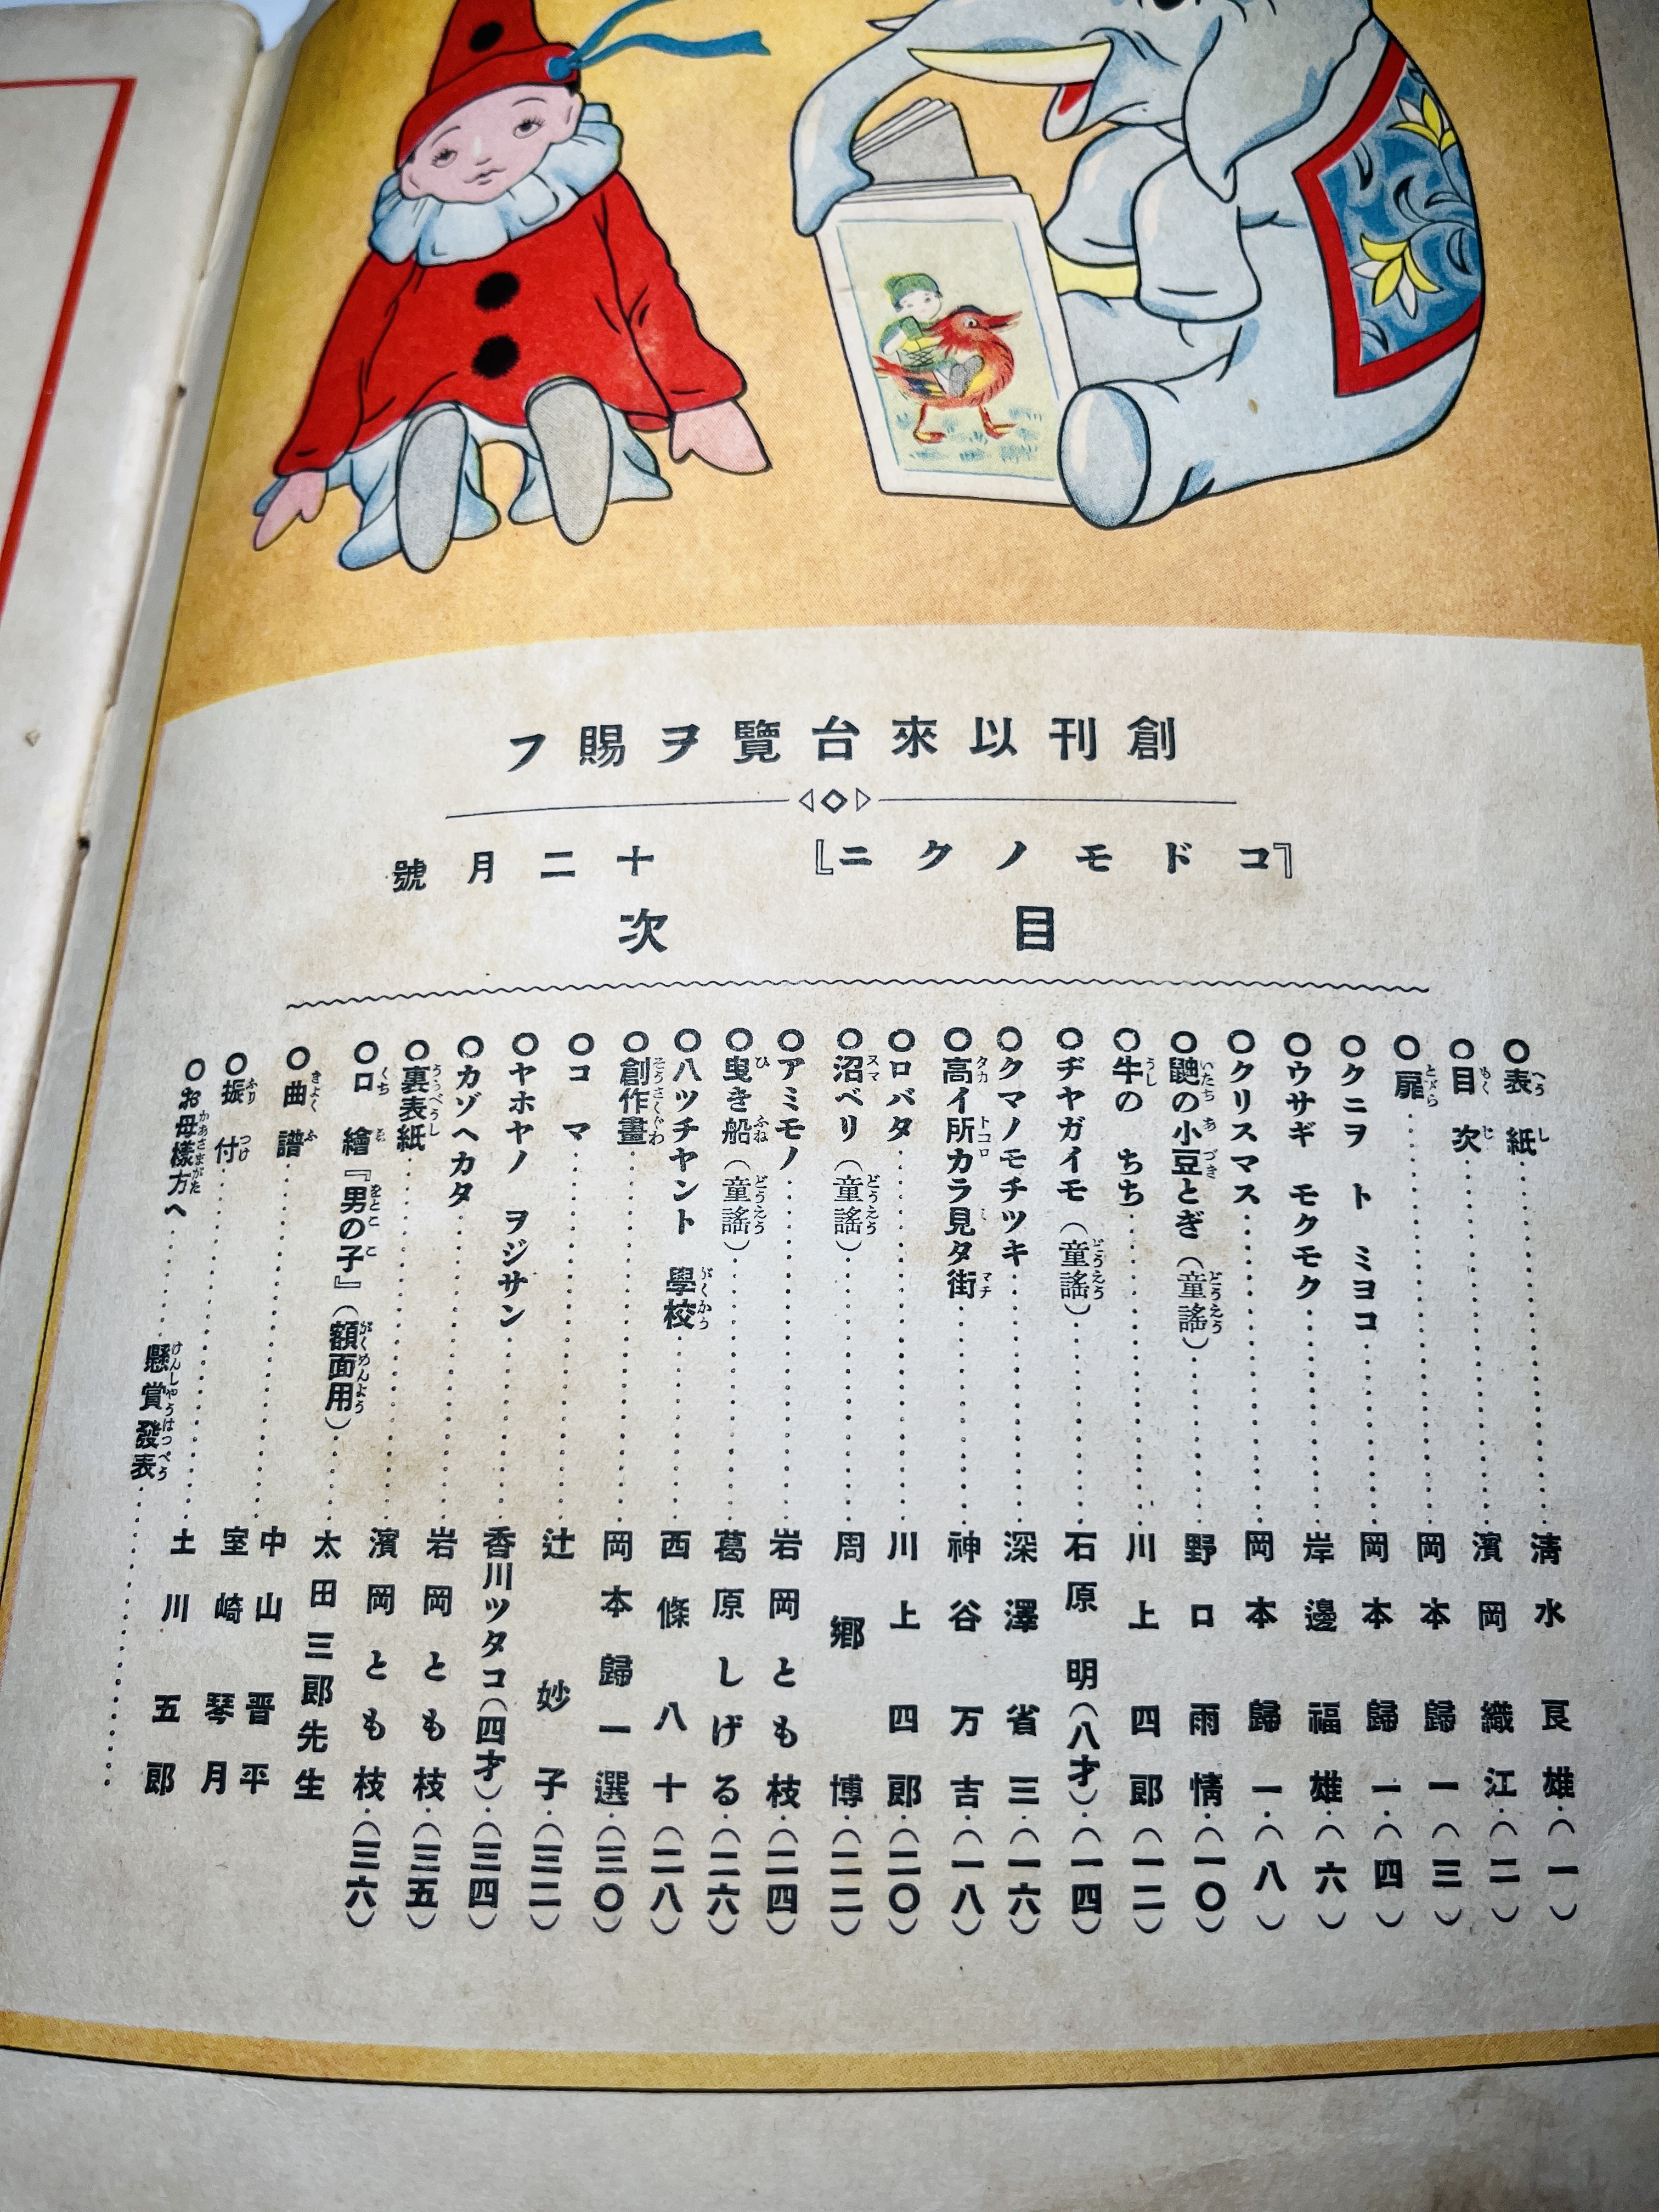 創刊以來台覽ヲ賜フ
『コドモノクニ』 十二月號
目次
○表紙……淸水良雄(一)
○目次……濱岡織江(二)
○扉……岡本歸一(三)
○クニヲ ト ミヨコ……岡本歸一(四)
○ウサギ モクモク……岸邊福雄(六)
○クリスマス……岡本歸一(八)
○鼬の小豆とぎ(童謠)……野口雨情(一〇)
○牛の ちち……川上四郎(一二)
○ヂヤガイモ(童謠)……石原明(八才)(一四)
○クマノモチツキ……深澤省三(一六)
○高イ所カラ見タ街……神谷万吉(一八)
○ロバタ……川上四郎(二〇)
○沼ベリ(童謠)……周郷博(二二)
○アミモノ……岩岡とも枝(二四)
○曳き船(童謠)……葛原しげる(二六)
○ハツチヤント 學校……西條八十(二八)
○創作畫……岡本歸一選(三〇)
○コマ……辻妙子(三二)
○ヤホヤノ ヲジサン……香川ツタコ(四才)(三四)
○カゾヘカタ……岩岡とも枝(三五)
○裏表紙……濱岡とも枝(三六)
○口繪『男の子』(額面用)……太田三郎先生
○曲譜……中山晋平
○振付……室崎琴月
○お母樣方へ……土川五郎
懸賞發表……